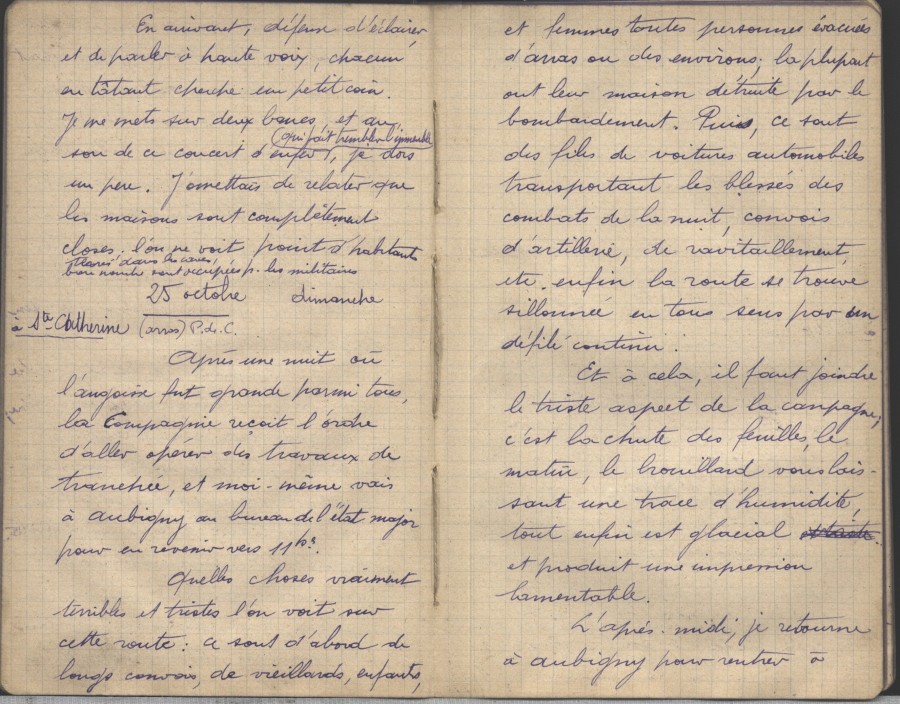 En arrivant, défense d'éclairer
et de parler à haute voix, chacun
en tâtant cherche un petit coin.
Je me mets sur deux bancs, et au
(qui fait trembler l'immeuble
son de ce concert d'enfer, je dors
un peu. J'omettais de relater que
les maisons sont complètement
closes. l'on ne voit point d'habitants
dans les caves,
bon nombre sont occupées p. les militaires
25 octobre dimanche
à Ste Catherine (arras) P. de C.
Après une nuit où
l'angoisse fut grande parmi tous,
la Compagnie reçoit l'ordre
d'aller opérer des travaux de
tranchée, et moi-même vais
à aubigny au bureau de l'état major
pour en revenir vers 11hs.
Quelles choses vraiment
terribles et tristes l'on voit sur
cette route : ce sont d'abord de
longs convois, de vieillards, enfants,
et femmes toutes personnes évacuées
d'arras ou des environs; la plupart
ont leur maison détruite par le
bombardement. Puis, ce sont
des files de voitures automobiles
transportant les blessés des
combats de la nuit, convois
d'artillerie, de ravitaillement,
etc. enfin la route se trouve
sillonnée en tous sens par un
défilé continu.
Et à cela, il faut joindre
le triste aspect de la campagne,
c'est la chute des feuilles, le
matin, le brouillard vous lais-
sant une trace d'humidité,
tout enfin est glacial
et produit une impression
lamentable.
L'après-midi, je retourne
à aubigny pour rentrer à